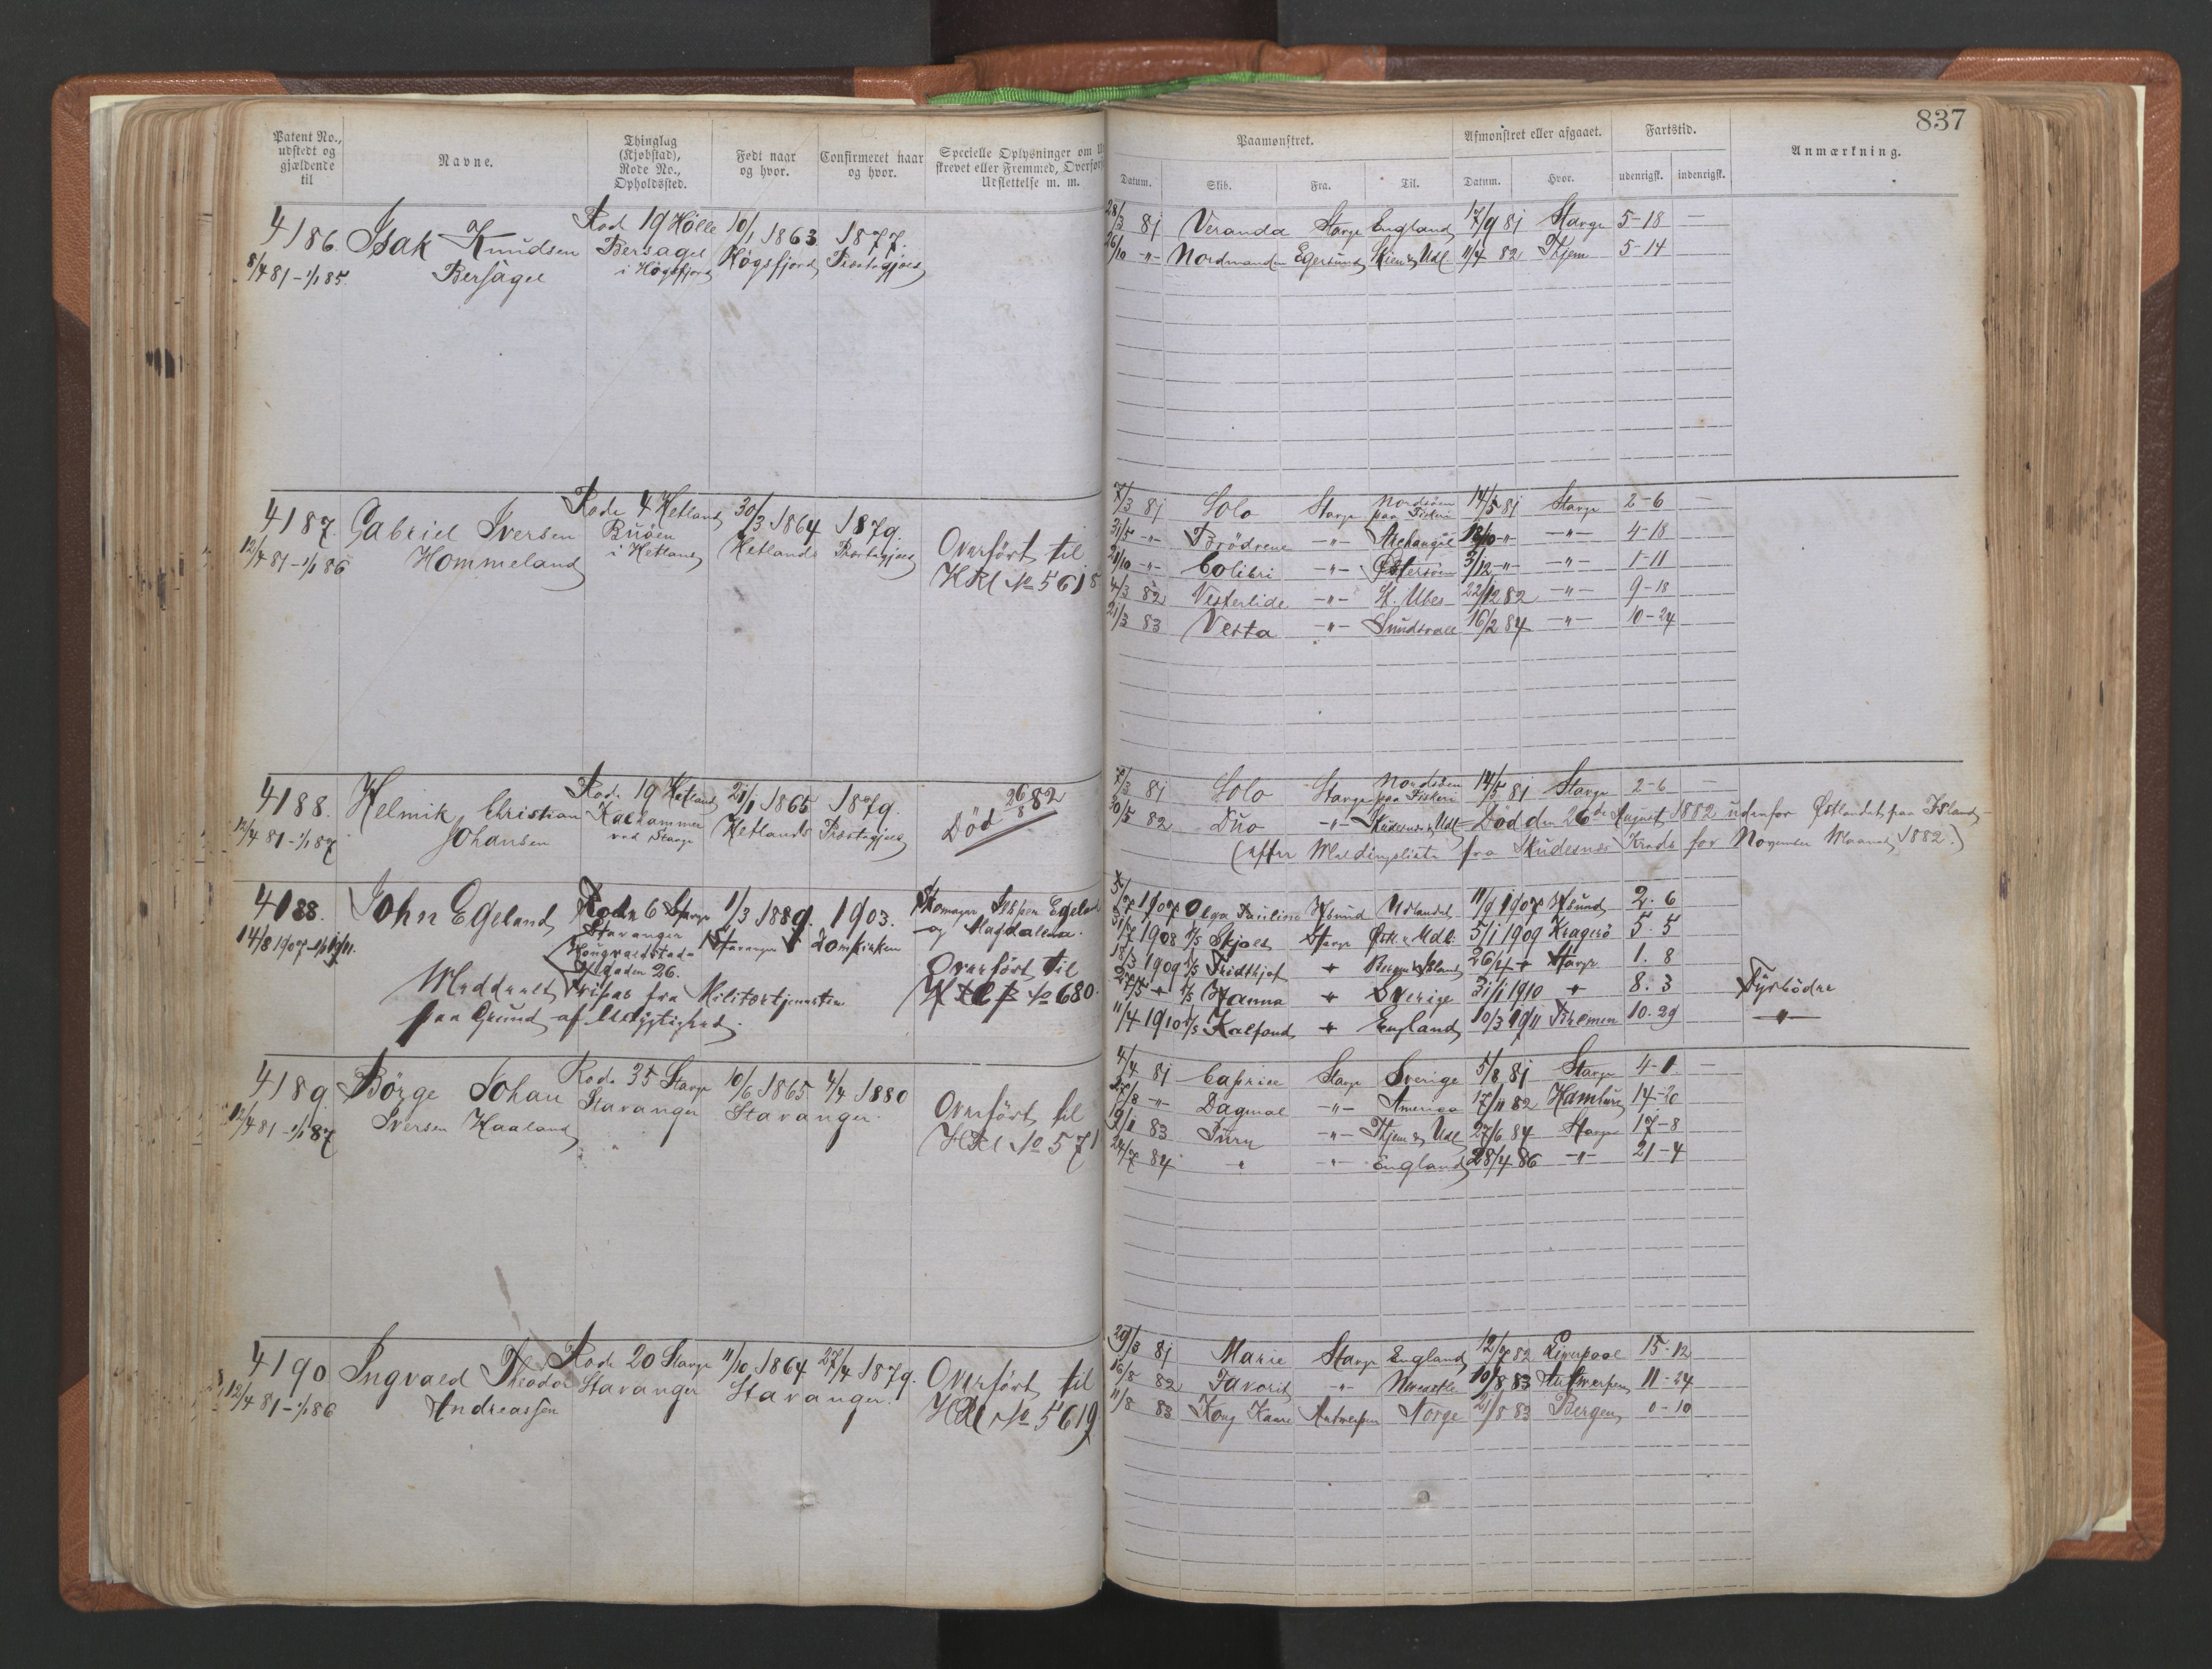 837
Patent No., udstedt og gjældende til
Navne.
Thinglag (Kjøbstad), Rode No., Opholdssted.
Født naar og hvor.
Confirmeret naar og hvor.
Specielle Oplysninger om
skrevet eller Fremmed, Overfør
Udslettelse m. m.
Paamønstret.
Afmønstret eller afgaaet.
Fartstid.
Anmærkning.
Datum. Skib. Fra. Til. Datum. Hvor. udenrigsk. indenrigsk.
4186 Isak Knudsen Rode 19 Hölle 10/1 1863 1877.
8/4 81 - 1/1 85. Bersagel Bersagel i Högsfjord Högsfjord Præstegjæld
28/3 81 Veranda Stavgr England 17/9 81 Stavgr 5-18 —
26/10 -"- Nordmanden Egersund Skien & Udl 11/4 82 Hjem 5-14
4187. Gabriel Iversen Rode 4 Hetland 30/3 1864 1879.
12/4 81 - 1/1 86 Hommeland Buöen i Hetland Hetlands Præstegjæld Overfört til
HRl No 5618
7/3 81 Solo Stavgr Nordsöen paa Fiskeri 14/5 81 Stavgr 2-6 —
31/5 -"- Brödrene -"- Archangel 18/10 -"- -"- 4-18
21/10 -"- Colibri -"- Østersöen 3/12 -"- -"- 1-11
4/3 82 Vesterlide -"- St. Ubes 22/12 82 -"- 9-18
21/3 83 Vesta -"- Sundsvall 16/2 84 -"- 10-24
4188. Helmik Christian Rode 19 Hetland 21/1 1865 1879.
12/4 81 - 1/1 87 Johansen Kalhammer ved Stavgr Hetlands Præstegjæld Död 26/8 82
7/3 81 Solo Stavgr Nordsöen paa Fiskeri 14/5 81 Stavgr 2-6 —
30/5 82 Duo -"- Skudesnæs & Udl = Död den 26de August 1882 udenfor Østlandet paa Island -
(efter Meldingsliste fra Skudesnæs Kreds for November Maaned 1882.)
4188. John Egeland Rode 6 Stavgr 1/3 1889. 1903.
14/8 1907 - 1/1 1911. Stavanger Stavanger Domkirken
Kongvaldstad-
gaden 26.
og Magdalena.
Overfört til
No 680.
Meddelt Fripas fra Militærtjenesten
paa Grund af Udygtighed.
1907 Olga Pauline Hsund Udlandet 11/9 1907 Hsund 2. 6
1908 D/S Skjold Stavgr Østl. & Udl. 5/1 1909 Kragerö 5. 5
18/3 1909 D/S Fridthjof 26/4 Stavgr 1. 8
27/5 D/S Hanna Sverige 31/1 1910 8. 3 Fyrbödre
11/4 1910 D/S Kalfond England 10/3 1911 Bremen 10. 29 -"-
4189. Börge Johan Rode 35 Stavgr 10/6 1865 4/4 1880
12/4 81 - 1/1 87 Iversen Haaland Stavanger Stavanger.
Overfört til
HRl No 571
4/4 81 Caprice Stavgr Sverige 5/8 81 Stavgr 4-1 —
27/8 -"- Dagmal -"- America 17/11 82 Hamburg 14-20
19/1 83 Furu -"- Hjem & Udl 27/6 84 Stavgr 17-8
24/7 84 " -"- England 28/4 86 -"- 21-4
4190 Ingvald Theodor Rode 20 Stavgr 11/10 1864 27/4 1879.
12/4 81 - 1/1 86 Andreassen Stavanger Stavanger.
Overfört til
HRl No 5619
29/3 81 Marie Stavgr England 12/7 82 Liverpool 15-12
16/8 82 Favorit -"- Newcastle 10/8 83 Antwerpen 11-24
11/8 83 Kong Kaare Antwerpen Norge 21/8 83 Bergen 0-10